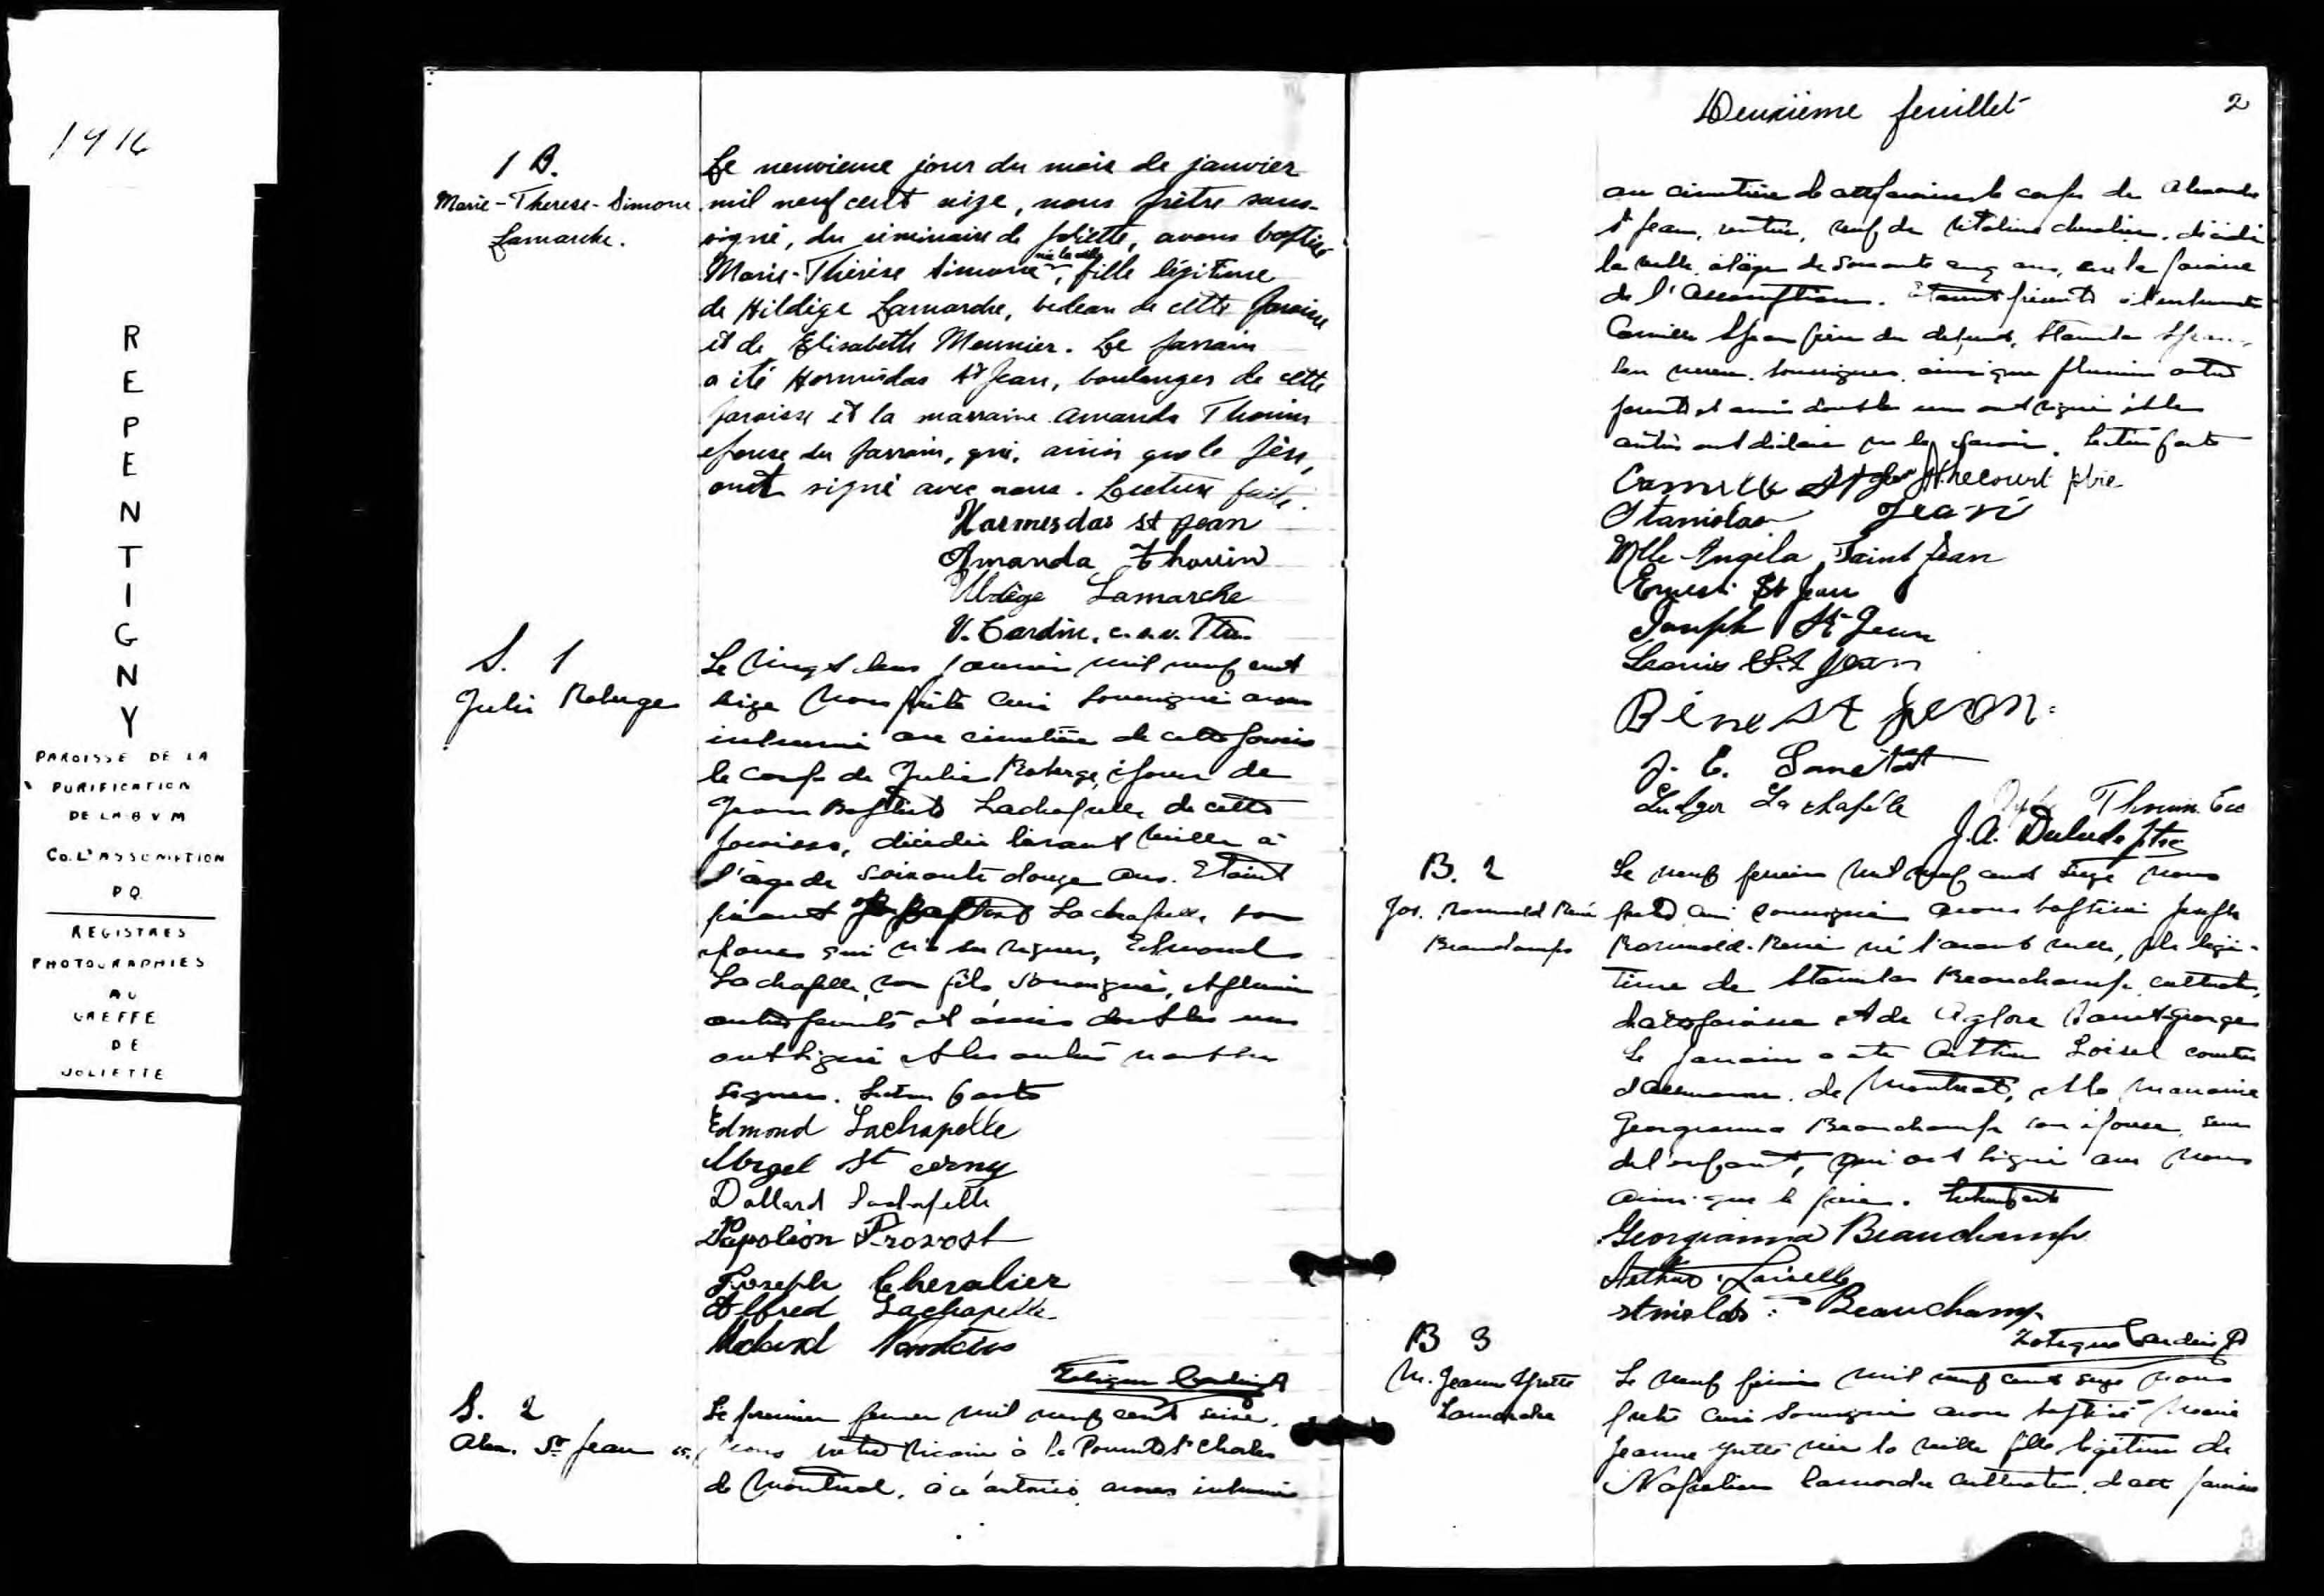 1916
REPENTIGNY
PAROISSE DE LA
PURIFICATION
DE LA B V M
CO. L'ASSOMPTION
P Q
REGISTRES
PHOTOGRAPHIES
AU
GREFFE
DE
JOLIETTE
1 B.
Marie-Therese-Simone
Lamarche.
Le neuvieme jour du mois de janvier
mil neuf cent seize, nous prêtre sous-
signé, du séminaire de Joliette, avons baptisé
née la veille
Marie-Thérèse Simone, fille légitime
de Hildège Lamarche, bedeau de cette paroisse
et de Elisabeth Meunier. Le parrain
a été Hormisdas St Jean, boulanger de cette
paroisse et la marraine Amanda Thouin
epouse du parrain, qui, ainsi que le père,
ont signé avec nous. Lecture faite.
Harmesdas st Jean
Amanda Thouin
Uldège Lamarche
V. Cardin, c.s.v. Ptre
S. 1
Julie Roberge
Le vingt deux janvier mil neuf cent
seize Nous prêtre curé soussigné avons
inhumé au cimetière de cette paroisse
le corps de Julie Roberge, épouse de
Jean Baptiste Lachapelle de cette
paroisse, décédée l'avant veille à
l'âge de soixante douze ans. Etaient
présent Lachapelle, son
epoux qui n'a su signer, Edmond
Lachapelle, son fils soussigné, et plusieurs
autres parents et amis dont les uns
ont signé et les autres n'ont su
signer. Lecture faite
Edmond Lachapelle
St
Dollard Lachapelle
Napoléon Provost
Joseph Chevalier
Alfred Lachapelle
S. 2
Alex. St Jean
Le premier fevrier mil neuf cent seize,
Nous vicaire à la Pointe St Charles
de Montréal, à ce autorisé avons inhumé
Deuxième feuillet
2
au cimetière de cette paroisse le corps de Alexandre
St Jean, rentier, veuf de Vitaline Chevalier, décédé
la veille à l'âge de soixante cinq ans, sur la paroisse
de l'Assomption. Etaient présents à l'inhumation
Camille St Jean frère du defunt, Stanislas St Jean,
son neveu soussignés, ainsi que plusieurs autres
parents et amis dont les uns ont signé et les
autres ont déclaré ne le savoir. Lecture faite
Camille St Jean ptre
Stanislas Jean
Mlle Angela Saint Jean
Ernest St Jean
Joseph St-Jean
Louis St Jean
Réne St Jean
J. E.
Ludger Lachapéle
Thouin
J.A. Dulude ptre
B. 2
Jos. Romuald René
Beauchamps
Le neuf fevrier mil neuf cent seize nous
prêtre curé soussigné avons baptisé Joseph
Romuald-René né l'avant veille, fils légi-
time de Stanislas Beauchamp, cultivateur,
de cette paroisse et de Aglore Saint Georges
Le parrain a été Arthur Loisel
de Montréal, et la marraine
Georgianna Beauchamp son épouse, soeur
de l'enfant, qui ont signé avec Nous
ainsi que le père. Lecture faite
Georgianna Beauchamp
Arthur Loiselle
Beauchamp
Zotique Cardin P
B 3
M. Jeanne Yvette
Lamarche
Le neuf fevrier mil neuf cent seize Nous
prêtre curé soussigné avons baptisé Marie
Jeanne Yvette née la veille fille légitime de
Napoléon Lamarche cultivateur, de cette paroisse